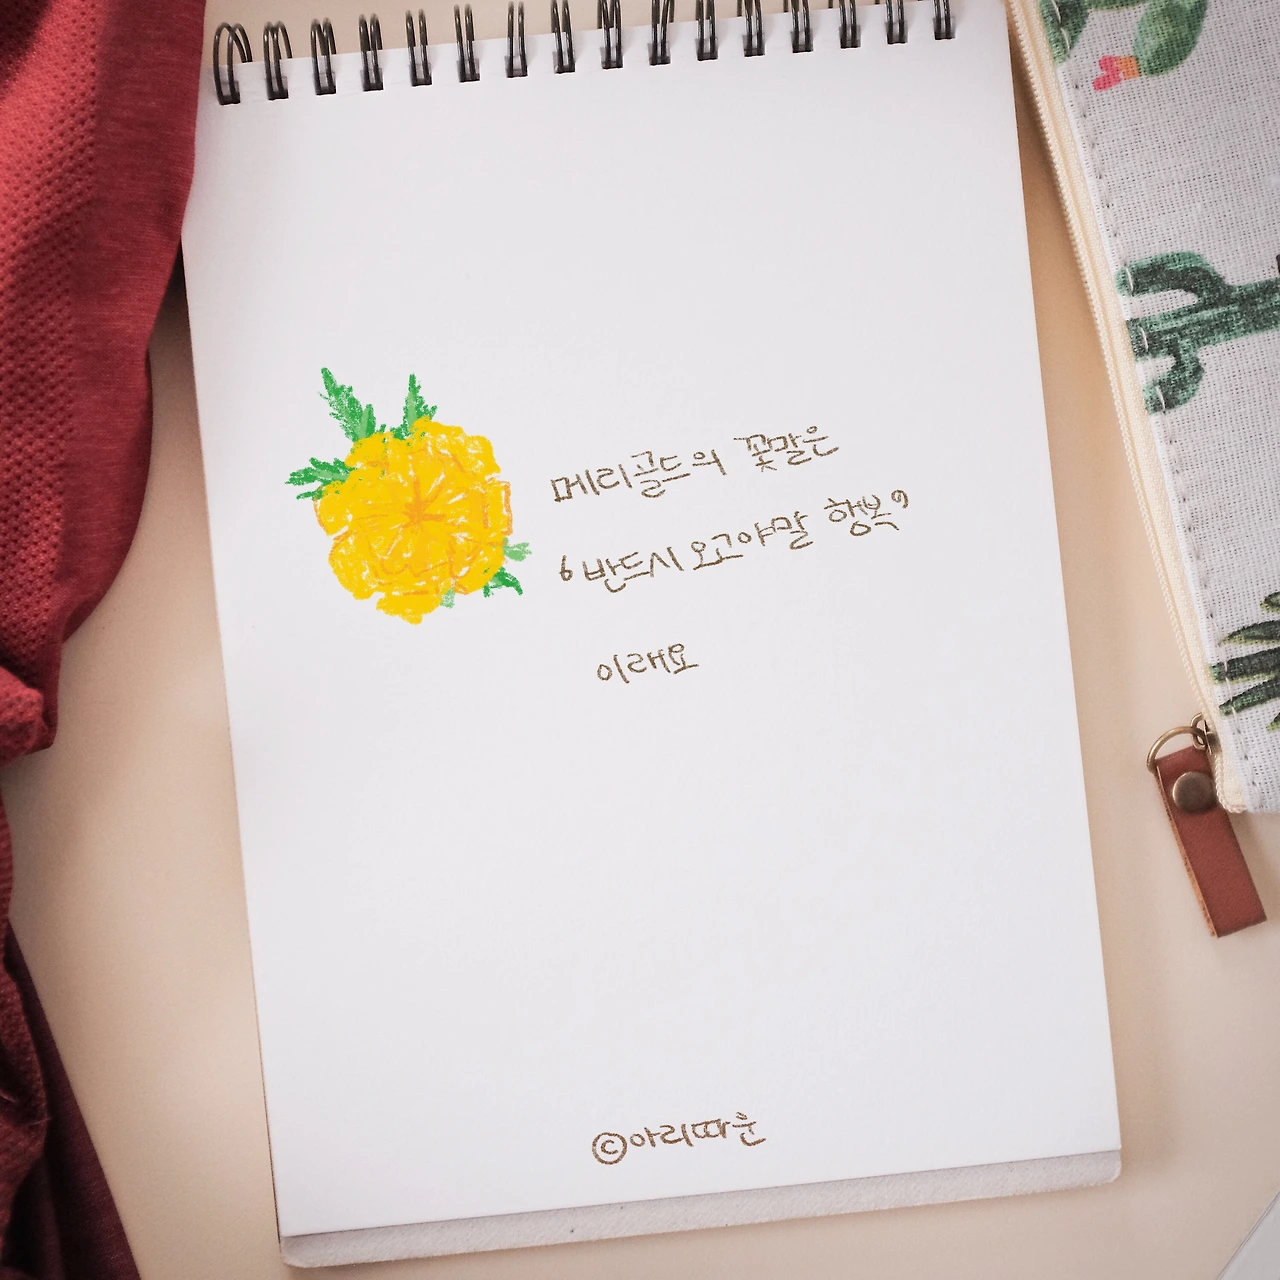 메리골드의 꽃말은
‘반드시 오고야말 행복’
이래요
©아리따운